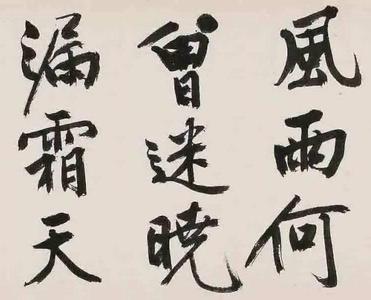 風雨何
曾迷曉
漏霜天